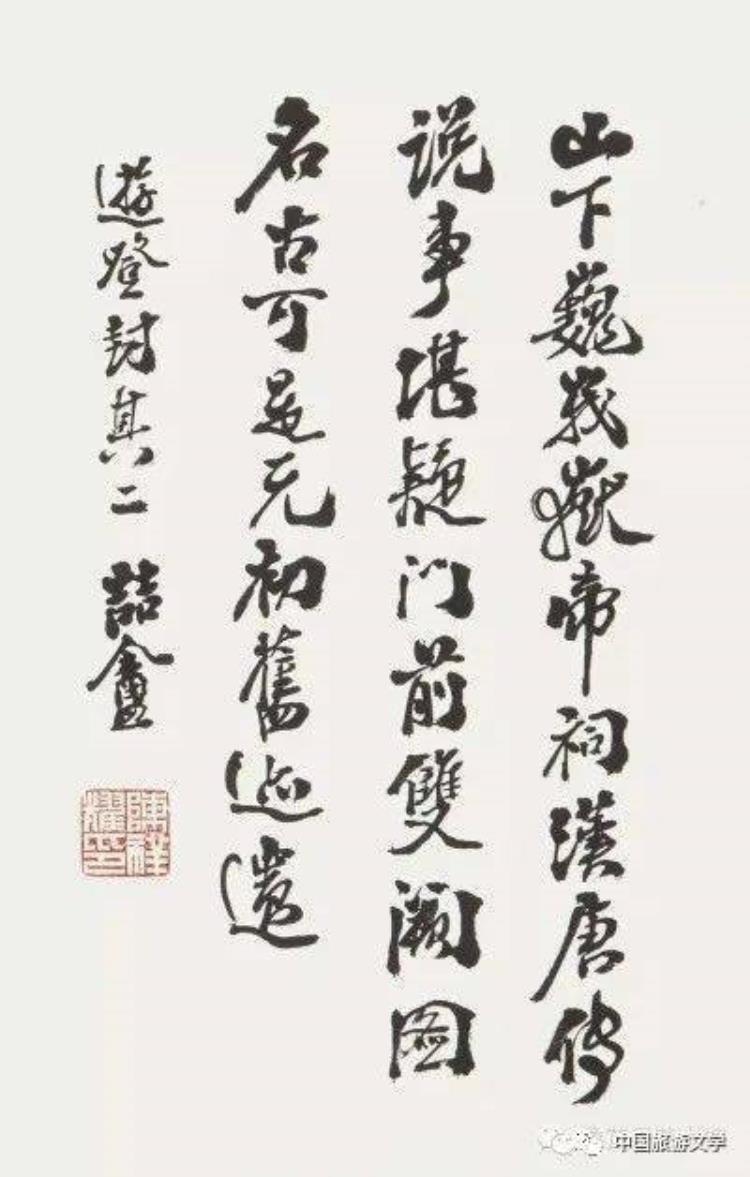 山下巍峩嶽帝祠漢唐傳
説事堪疑门前雙阙图
名古可是元初舊迹遺
遊登封其二 喆盦
陳祥耀印
中国旅游文学